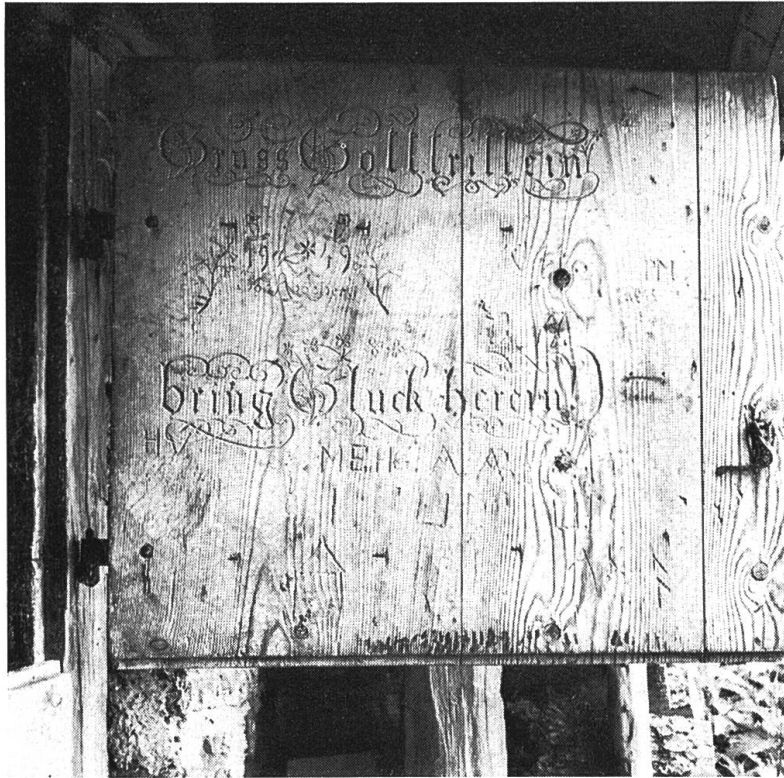 Grüss Gott tritt ein
19 19
PM
bring Glück herein
HV
MEH A A